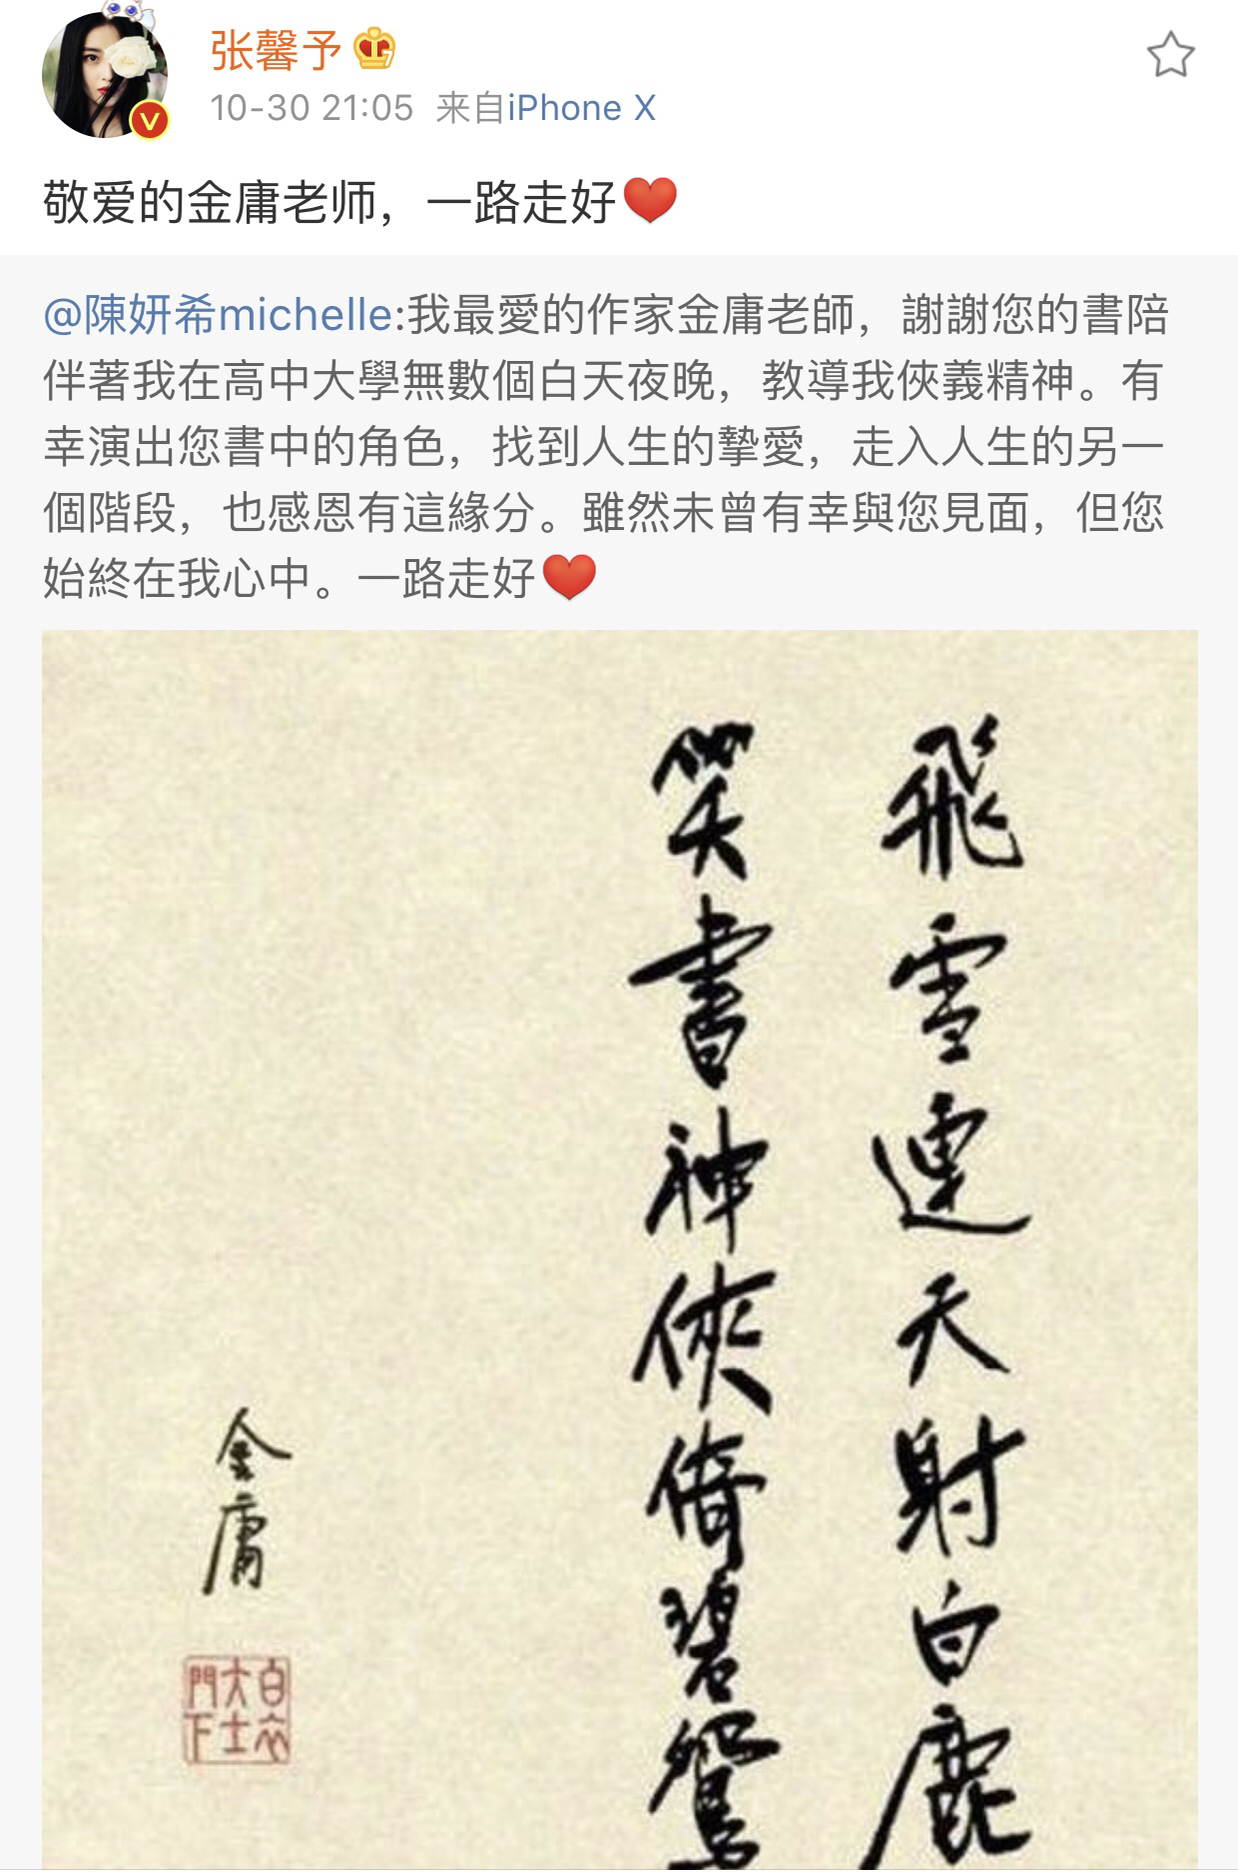 张馨予
10-30 21:05 来自iPhone X
敬爱的金庸老师，一路走好❤️
@陳妍希michelle:我最愛的作家金庸老師，謝謝您的書陪
伴著我在高中大學無數個白天夜晚，教導我俠義精神。有
幸演出您書中的角色，找到人生的摯愛，走入人生的另一
個階段，也感恩有這緣分。雖然未曾有幸與您見面，但您
始終在我心中。一路走好❤️
飛雪連天射白鹿
笑書神俠倚碧鴛
金庸